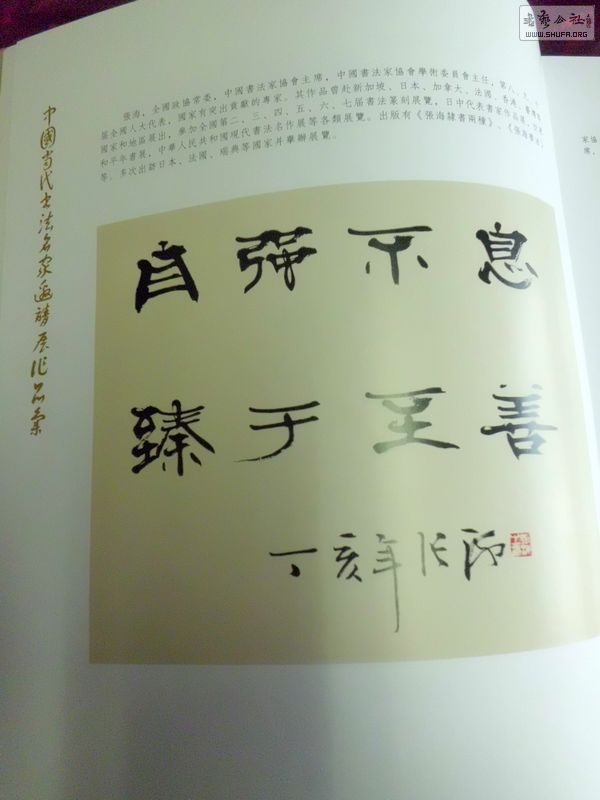 書藝公社
WWW.SHUFA.ORG
中國當代書法名家邀請展作品集
張海，全國政協常委，中國書法家協會主席，中國書法家協會學術委員會主任，第八、九、十
屆全國人大代表，國家有突出貢獻的專家。其作品曾赴新加坡、日本、加拿大、法國、香港、臺灣等
國家和地區展出，參加全國第二、三、四、五、六、七屆書法篆刻展覽，日中代表書家作品展，國際
和平年書展，中華人民共和國現代書法名作展等各類展覽。出版有《張海隸書兩種》、《張海書法》
等。多次出訪日本、法國、瑞典等國家并舉辦展覽。
自強不息
臻于至善
丁亥年 張海
家協
席，